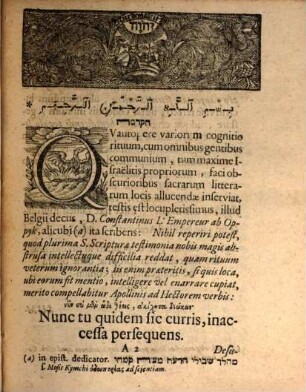 * بسم الله الرحمن الرحيم
הקדמה
QVantopere variorum cognitio
rituum, cum omnibus gentibus
communium, tum maxime I-
sraëlitis propriorum, faci ob-
scurioribus sacrarum littera-
tum locis allucendæ inserviat,
testis est locupletissimus, illud
Belgii decus, D. Constantinus L' Empereur ab Op-
pyk, alicubi (a) ita scribens: Nihil reperiri potest,
quod plurima S. Scriptura testimonia nobis magis ab-
strusa intellectuque difficilia reddat, quam rituum
veterum ignorantia; iis enim præteritis, si quis loca,
ubi eorum fit mentio, intelligere vel enarrare cupiat,
merito compellabitur Apollinis ad Hectorem verbis:
Nunc tu quidem sic curris, inac-
cessa persequens.
A 2 Dese-
(a) in epist. dedicator. מהלך שבילי הדעת
f. Mosis Kymchi ad scientiam.